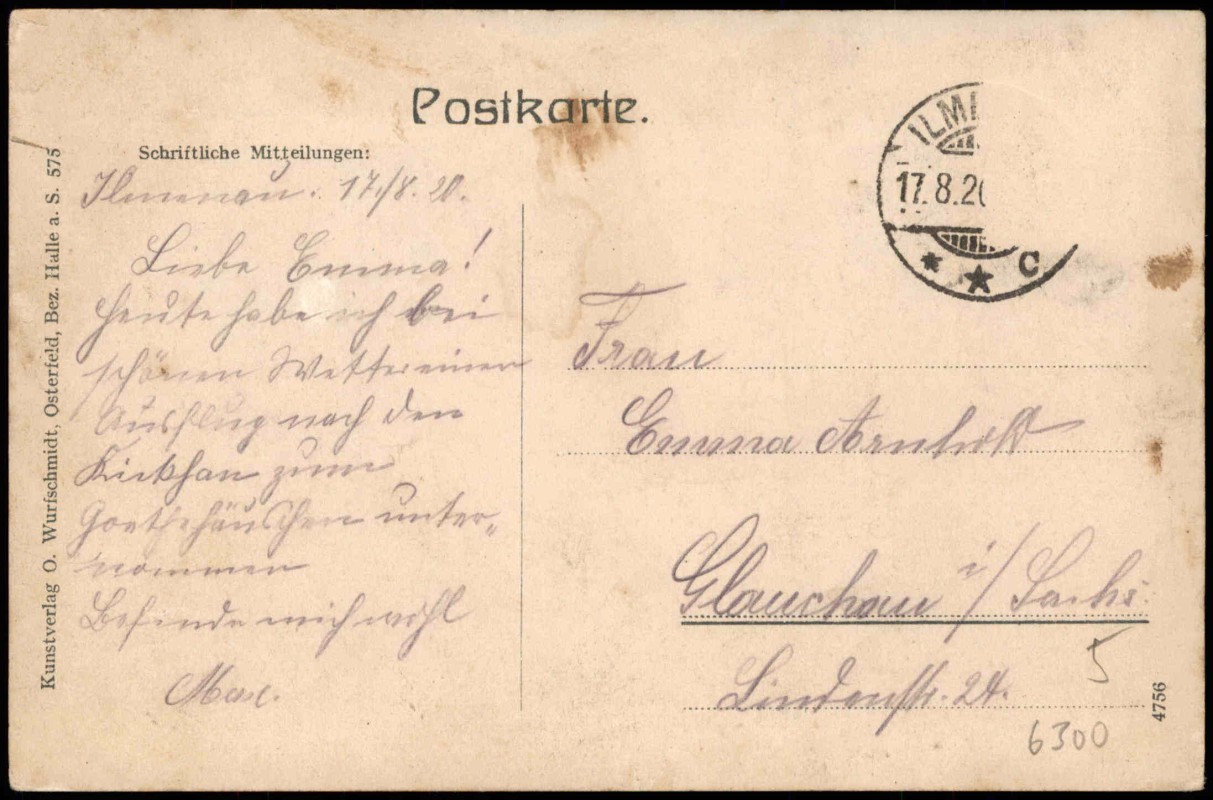 Postkarte.
Schriftliche Mitteilungen:
Ilmenau. 17./8. 20.
Liebe Emma!
Heute habe ich bei
schönen Wetter einen
Ausflug nach den
Kickhan zum
Goethehäuschen unter-
nommen
Befinde mich wohl
Max.
Kunstverlag O. Wurfschmidt, Osterfeld, Bez. Halle a. S. 575
ILM
17.8.20
* ★ C
Frau
Emma Arnhold
Glauchau i/Sachs.
Lindenstr. 24.
5
6300
4756